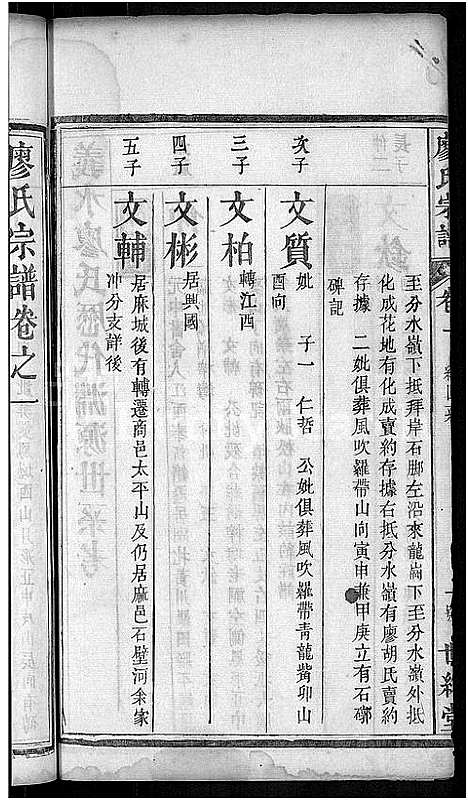 廖氏宗譜
至分水嶺下抵拜岸石腳左沿來龍崗下至分水嶺外抵
化成花地有化成賣約存據右抵分水嶺有廖胡氏賣約
存據　二妣俱葬風吹羅帶山向寅申兼甲庚立有石碑
碑記
次子
文質
妣　子一　仁哲　公妣俱葬風吹羅帶青龍嘴卯山
酉向
三子
文柏
轉江西
四子
文彬
居興國
五子
文輔
居麻城後有轉遷商邑太平山及仍居麻邑石壁河余家
冲分支詳後
廖氏宗譜卷之一